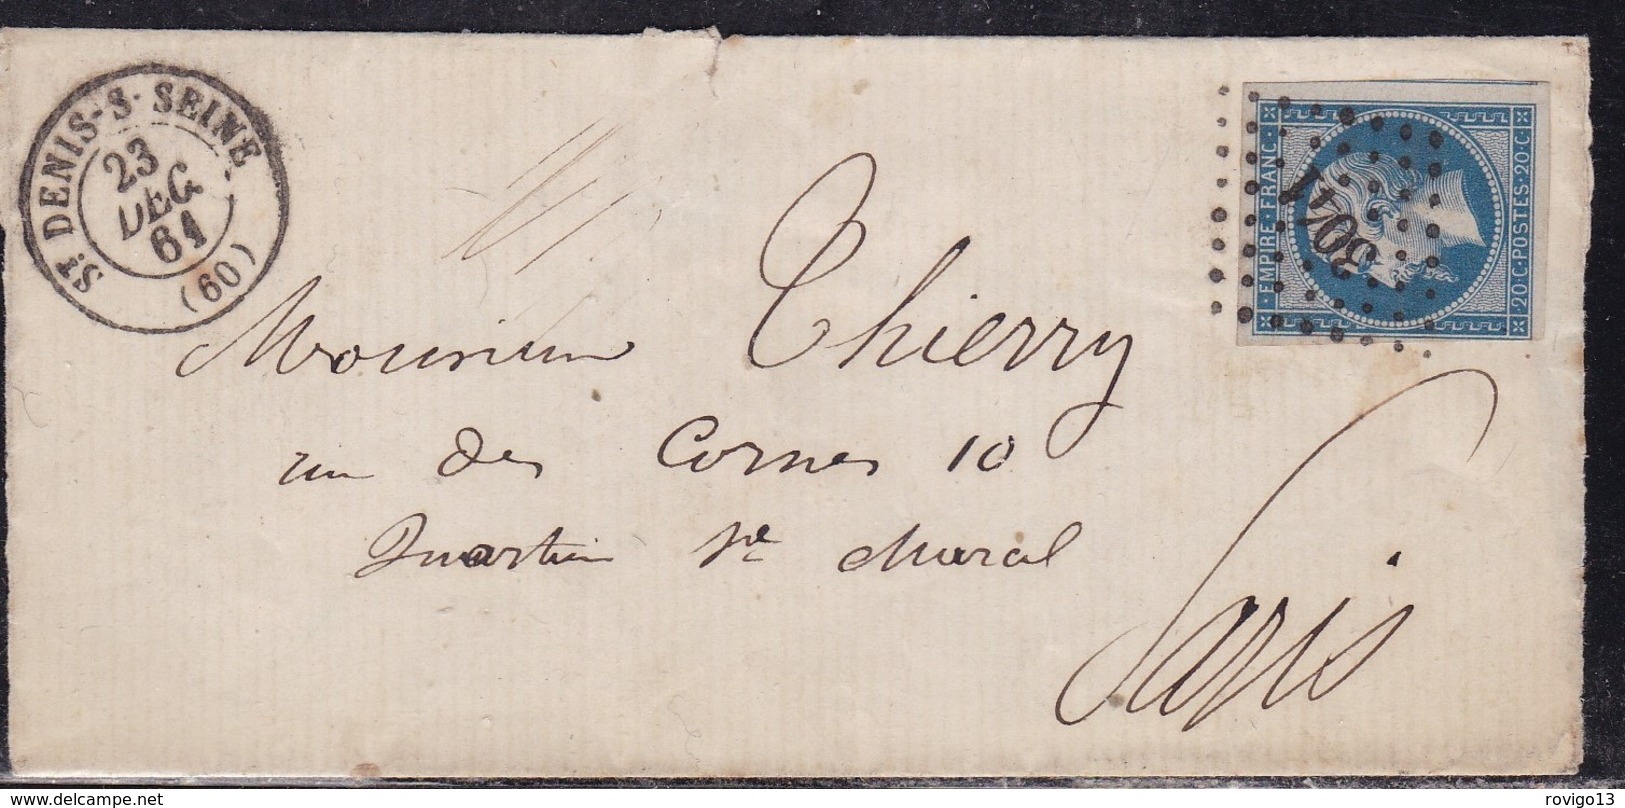 ST. DENIS-S-SEINE
23
DEC
61
(60)
EMPIRE·FRANC·
20·C·POSTES·20·C·
3041
Monsieur Thierry
rue des Cornes 10
Quartier St Marcel
Paris
delcampe.net
rovigo13